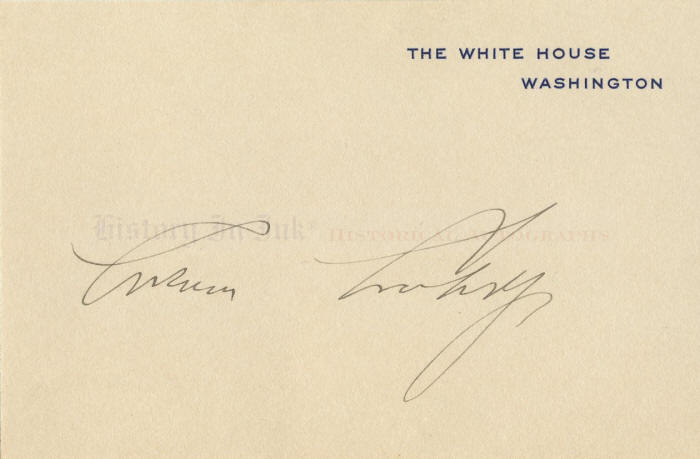 THE WHITE HOUSE
WASHINGTON
History In Ink® HISTORICAL AUTOGRAPHS
Calvin Coolidge